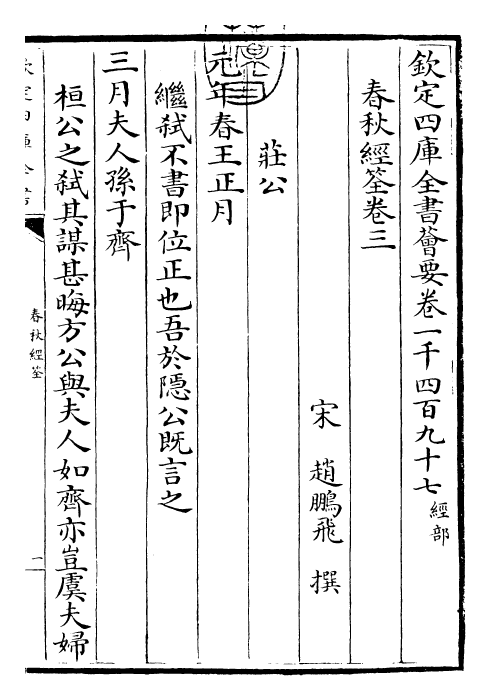 欽定四庫全書薈要卷一千四百九十七 經部
春秋經筌卷三
宋 趙鵬飛 撰
莊公
元年春王正月
繼弑不書即位正也吾於隠公既言之
三月夫人孫于齊
桓公之弑其謀甚晦方公與夫人如齊亦豈虞夫婦
春秋經筌
一